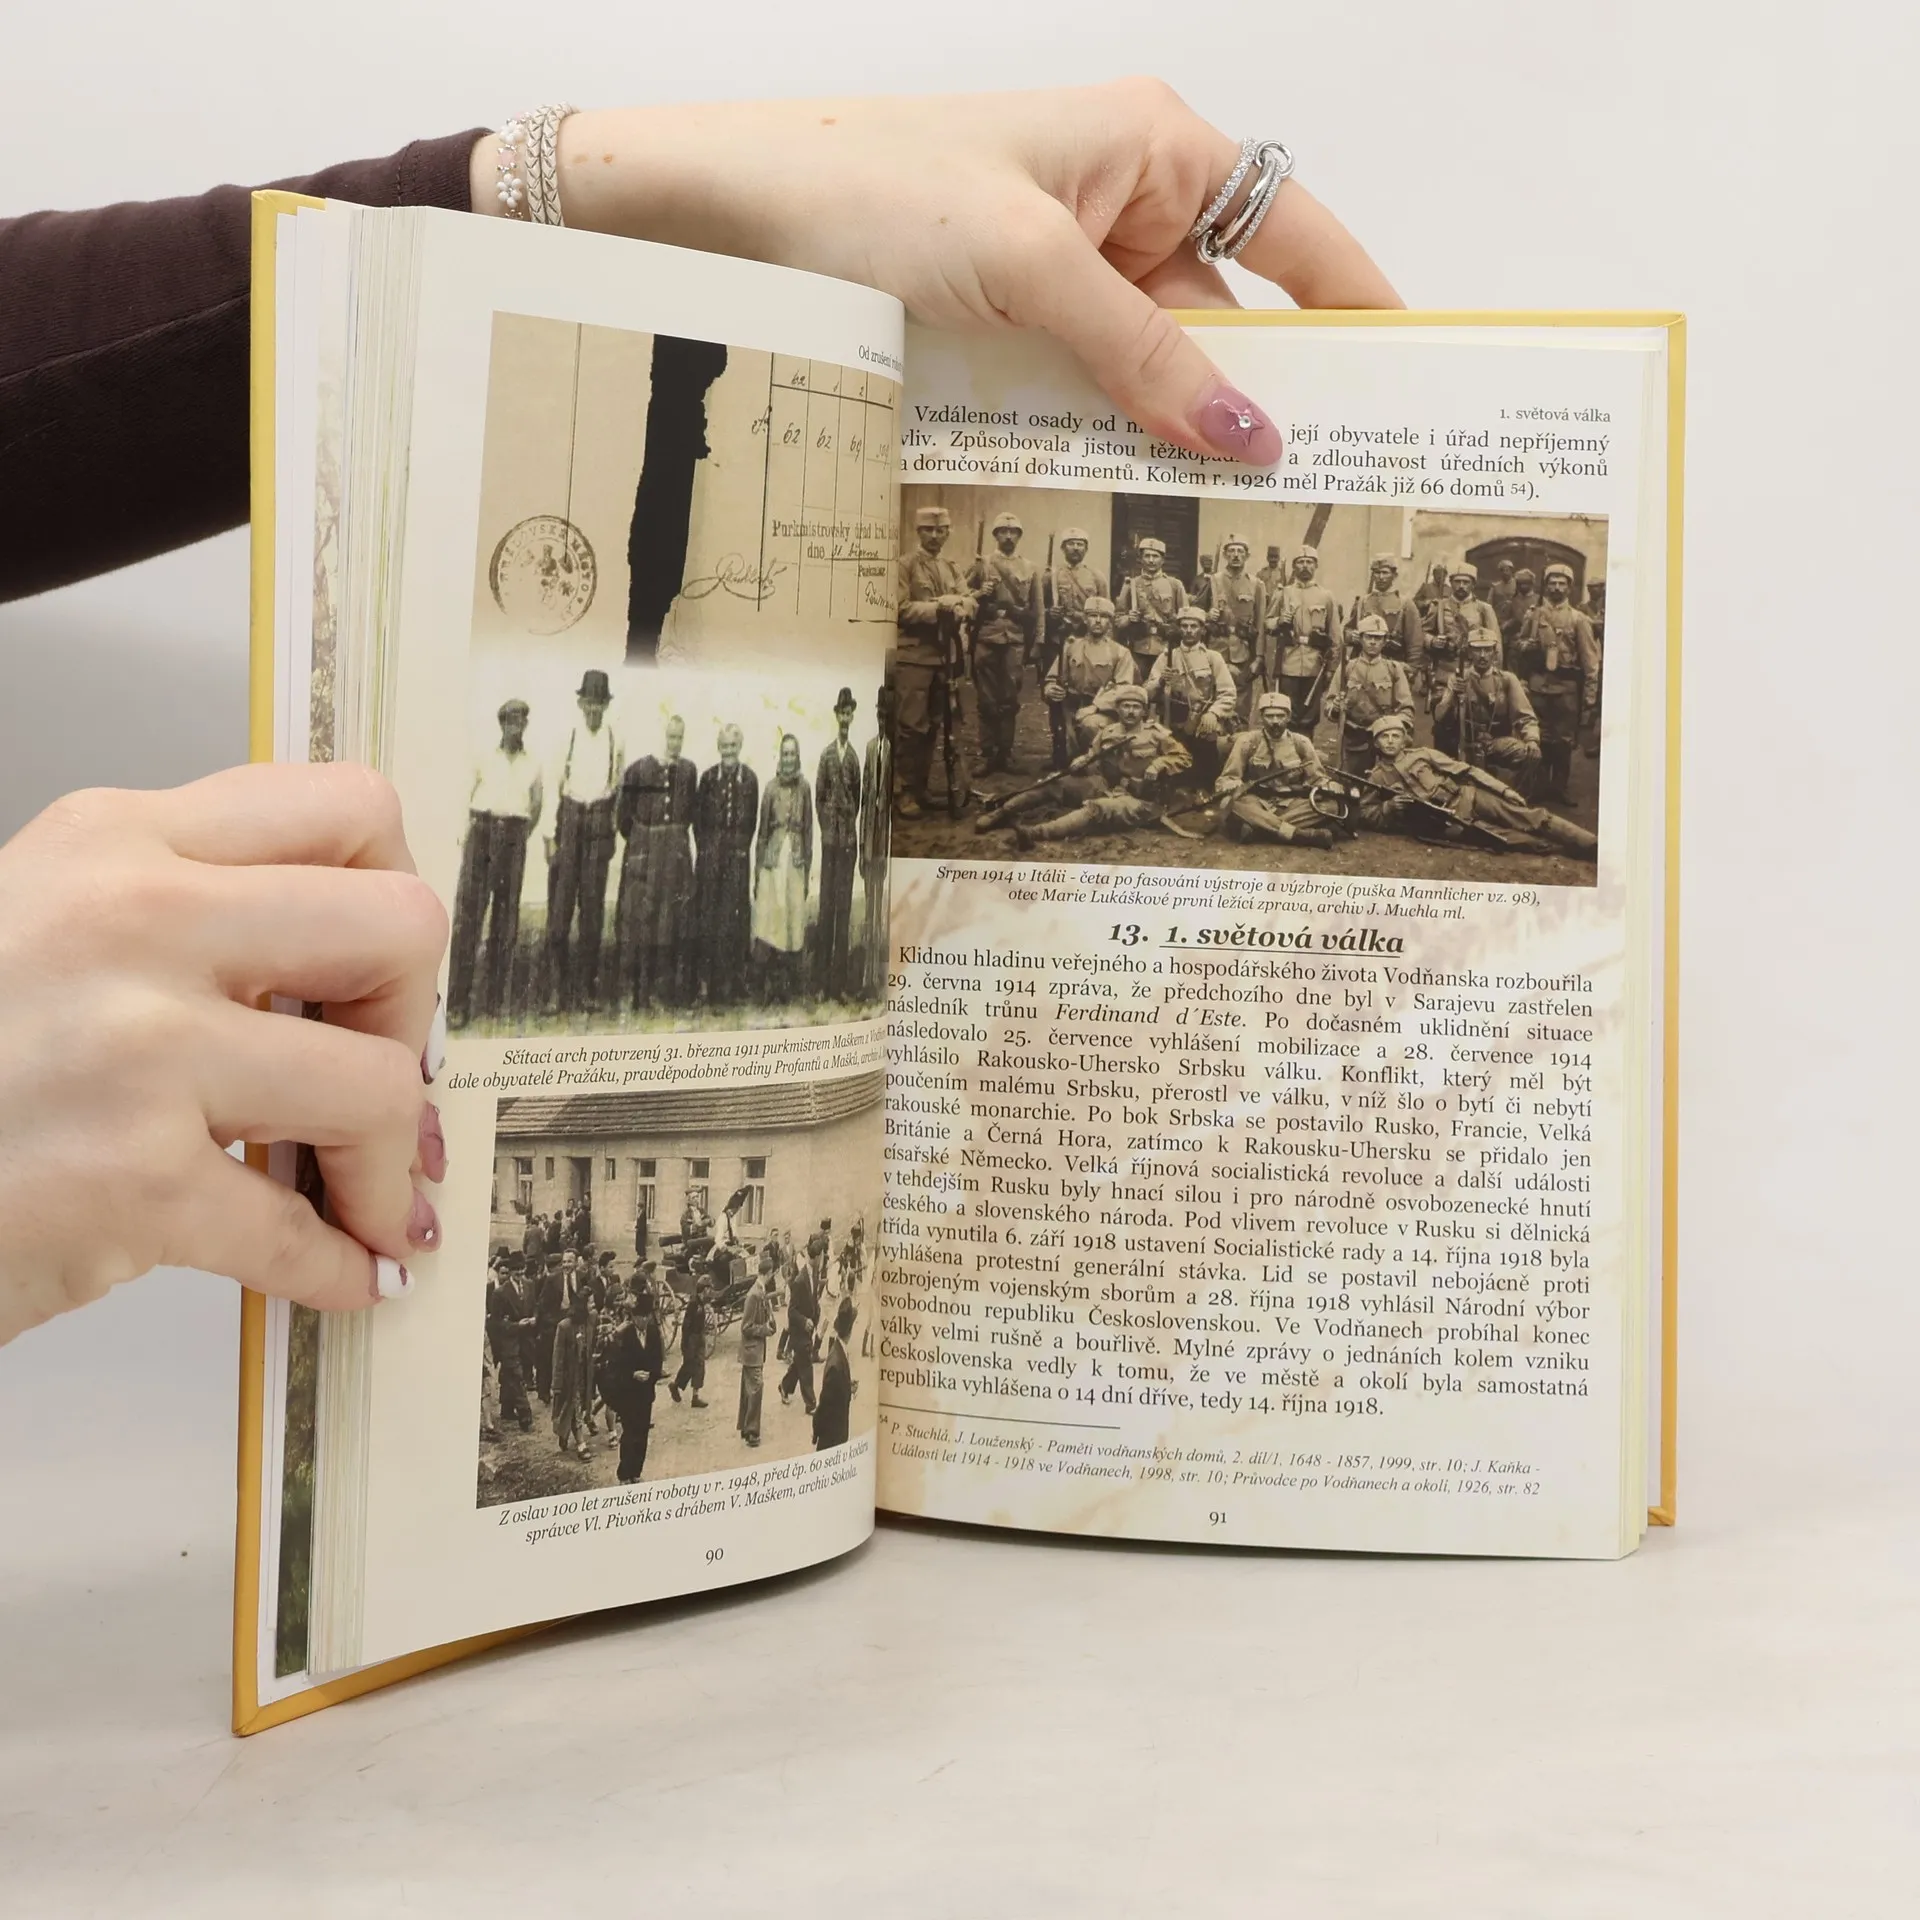 Od zrušení
62 1 2
62 62 69
Purkmistrovský úřad
dne 31. března
Sčítací arch potvrzený 31. března 1911 purkmistrem Maškem z
dole obyvatelé Pražáku, pravděpodobně rodiny Profantů a Mašků,
Z oslav 100 let zrušení roboty v r. 1948, před čp. 60 sedí v kočáru
správce Vl. Pivoňka s drábem V. Maškem, archiv Sokola.
90
1. světová válka
Vzdálenost osady od její obyvatele i úřad nepříjemný
vliv. Způsobovala jistou a zdlouhavost úředních výkonů
a doručování dokumentů. Kolem r. 1926 měl Pražák již 66 domů 54).
Srpen 1914 v Itálii - četa po fasování výstroje a výzbroje (puška Mannlicher vz. 98),
otec Marie Lukáškové první ležící zprava, archiv J. Muchla ml.
13. 1. světová válka
Klidnou hladinu veřejného a hospodářského života Vodňanska rozbouřila
29. června 1914 zpráva, že předchozího dne byl v Sarajevu zastřelen
následník trůnu Ferdinand d´Este. Po dočasném uklidnění situace
následovalo 25. července vyhlášení mobilizace a 28. července 1914
vyhlásilo Rakousko-Uhersko Srbsku válku. Konflikt, který měl být
poučením malému Srbsku, přerostl ve válku, v níž šlo o bytí či nebytí
rakouské monarchie. Po bok Srbska se postavilo Rusko, Francie, Velká
Británie a Černá Hora, zatímco k Rakousku-Uhersku se přidalo jen
císařské Německo. Velká říjnová socialistická revoluce a další události
v tehdejším Rusku byly hnací silou i pro národně osvobozenecké hnutí
českého a slovenského národa. Pod vlivem revoluce v Rusku si dělnická
třída vynutila 6. září 1918 ustavení Socialistické rady a 14. října 1918 byla
vyhlášena protestní generální stávka. Lid se postavil nebojácně proti
ozbrojeným vojenským sborům a 28. října 1918 vyhlásil Národní výbor
svobodnou republiku Československou. Ve Vodňanech probíhal konec
války velmi rušně a bouřlivě. Mylné zprávy o jednáních kolem vzniku
Československa vedly k tomu, že ve městě a okolí byla samostatná
republika vyhlášena o 14 dní dříve, tedy 14. října 1918.
54 P. Stuchlá, J. Louženský - Paměti vodňanských domů, 2. díl/1, 1648 - 1857, 1999, str. 10; J. Kaňka -
Události let 1914 - 1918 ve Vodňanech, 1998, str. 10; Průvodce po Vodňanech a okolí, 1926, str. 82
91